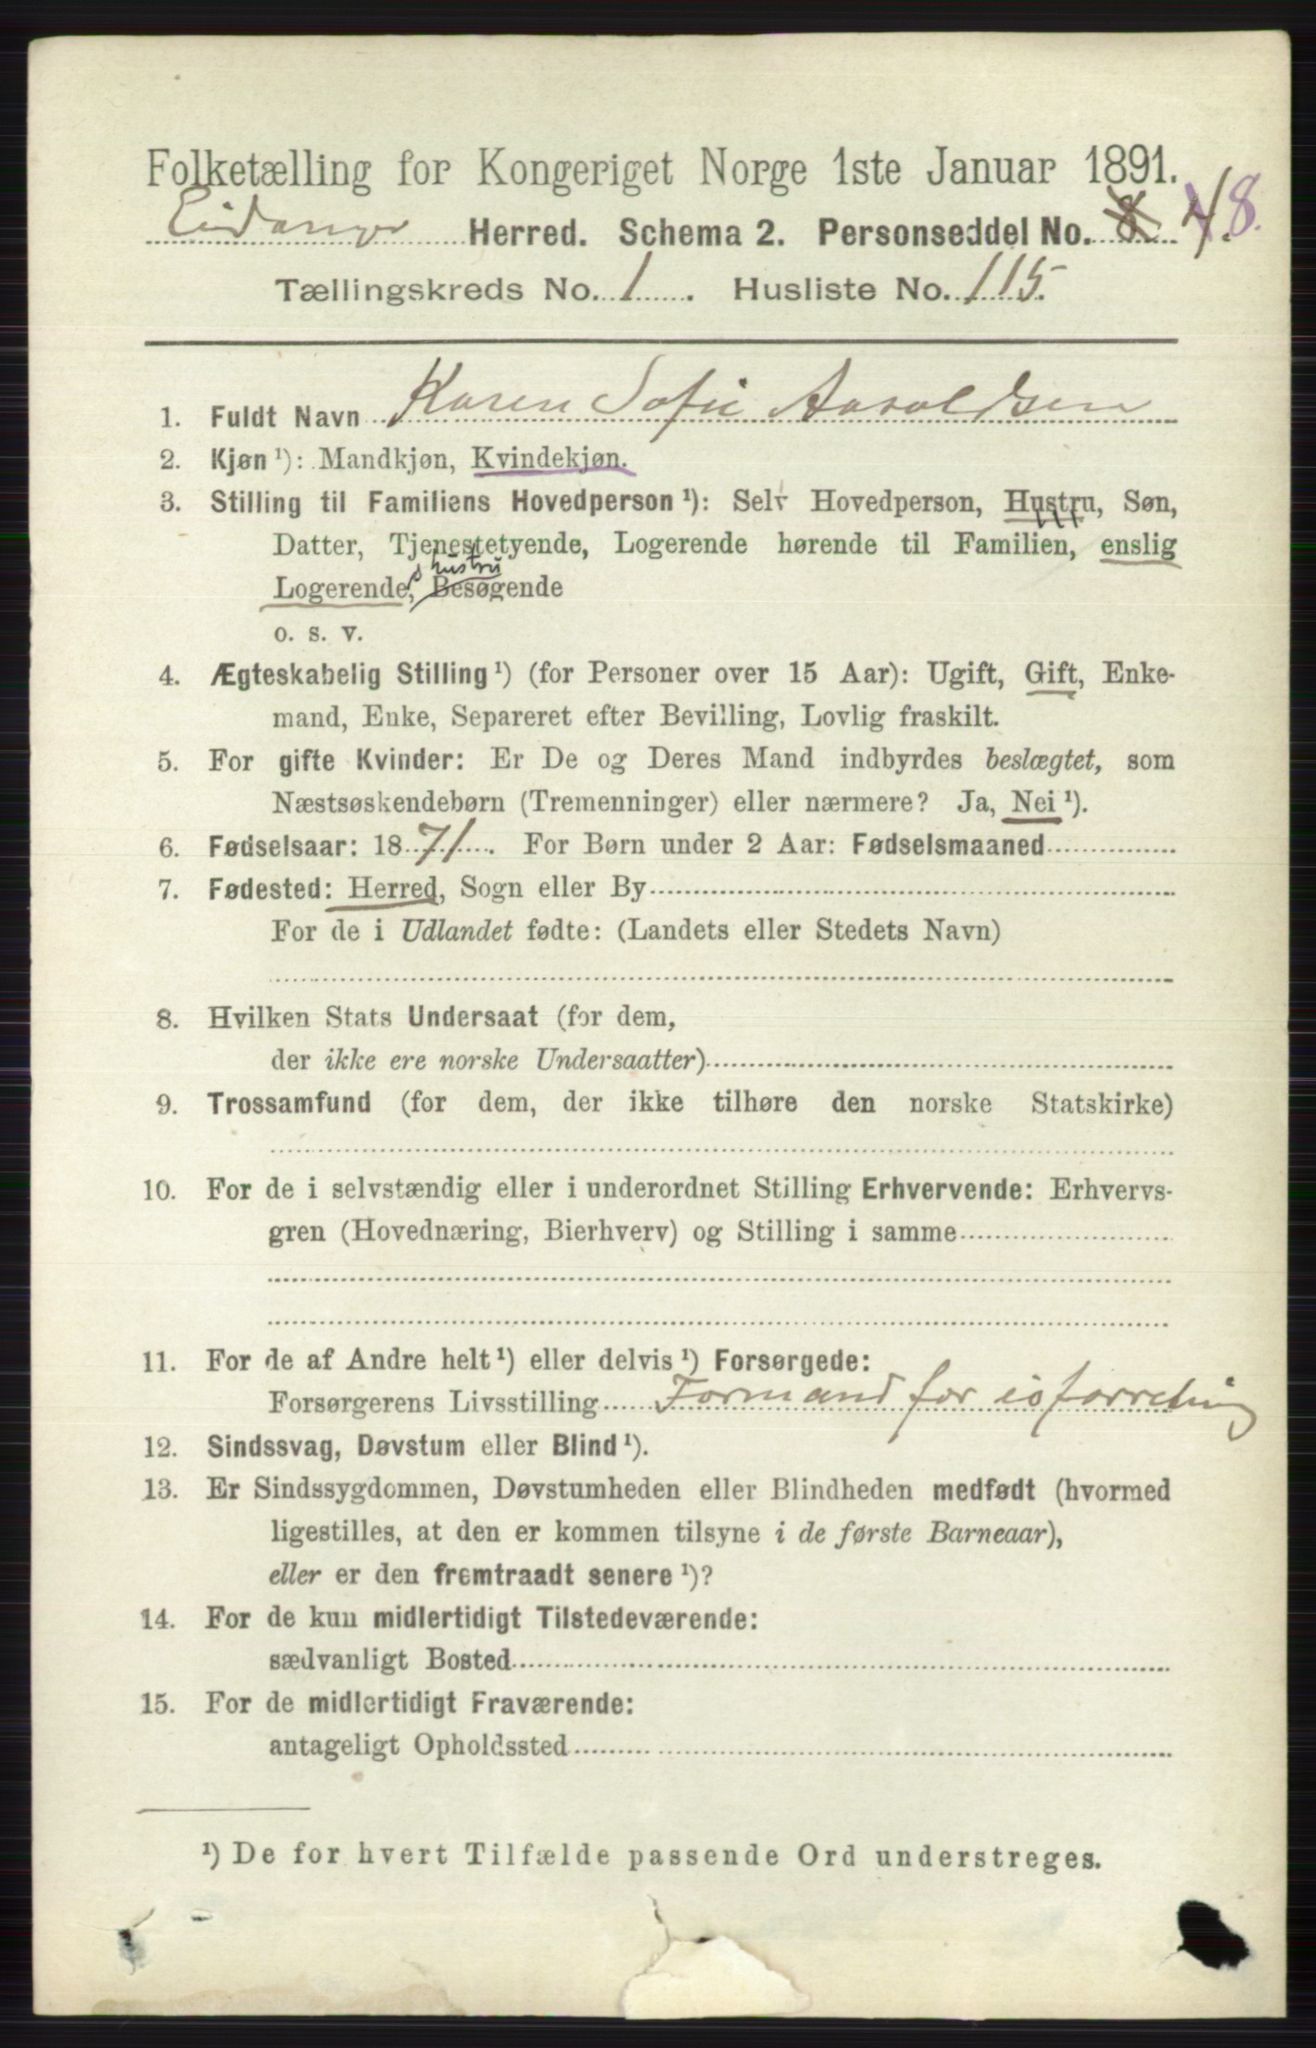 Folketælling for Kongeriget Norge 1ste Januar 1891.
Eidanger Herred. Schema 2. Personseddel No. 8 48.
Tællingskreds No. 1. Husliste No. 115.
1. Fuldt Navn Karen Sofie Aaroldsen
2. Kjøn ¹): Mandkjøn, Kvindekjøn.
3. Stilling til Familiens Hovedperson ¹): Selv Hovedperson, Hustru, Søn,
Datter, Tjenestetyende, Logerende hørende til Familien, enslig
hustru
Logerende, Besøgende
o. s. v.
4. Ægteskabelig Stilling ¹) (for Personer over 15 Aar): Ugift, Gift, Enke-
mand, Enke, Separeret efter Bevilling, Lovlig fraskilt.
5. For gifte Kvinder: Er De og Deres Mand indbyrdes beslægtet, som
Næstsøskendebørn (Tremenninger) eller nærmere? Ja, Nei ¹).
6. Fødselsaar: 1871. For Børn under 2 Aar: Fødselsmaaned
7. Fødested: Herred, Sogn eller By
For de i Udlandet fødte: (Landets eller Stedets Navn)
8. Hvilken Stats Undersaat (for dem,
der ikke ere norske Undersaatter)
9. Trossamfund (for dem, der ikke tilhøre den norske Statskirke)
10. For de i selvstændig eller i underordnet Stilling Erhvervende: Erhvervs-
gren (Hovednæring, Bierhverv) og Stilling i samme
11. For de af Andre helt ¹) eller delvis ¹) Forsørgede:
Forsørgerens Livsstilling Formand for isforretning
12. Sindssvag, Døvstum eller Blind ¹).
13. Er Sindssygdommen, Døvstumheden eller Blindheden medfødt (hvormed
ligestilles, at den er kommen tilsyne i de første Barneaar),
eller er den fremtraadt senere ¹)?
14. For de kun midlertidigt Tilstedeværende:
sædvanligt Bosted
15. For de midlertidigt Fraværende:
antageligt Opholdssted
¹) De for hvert Tilfælde passende Ord understreges.